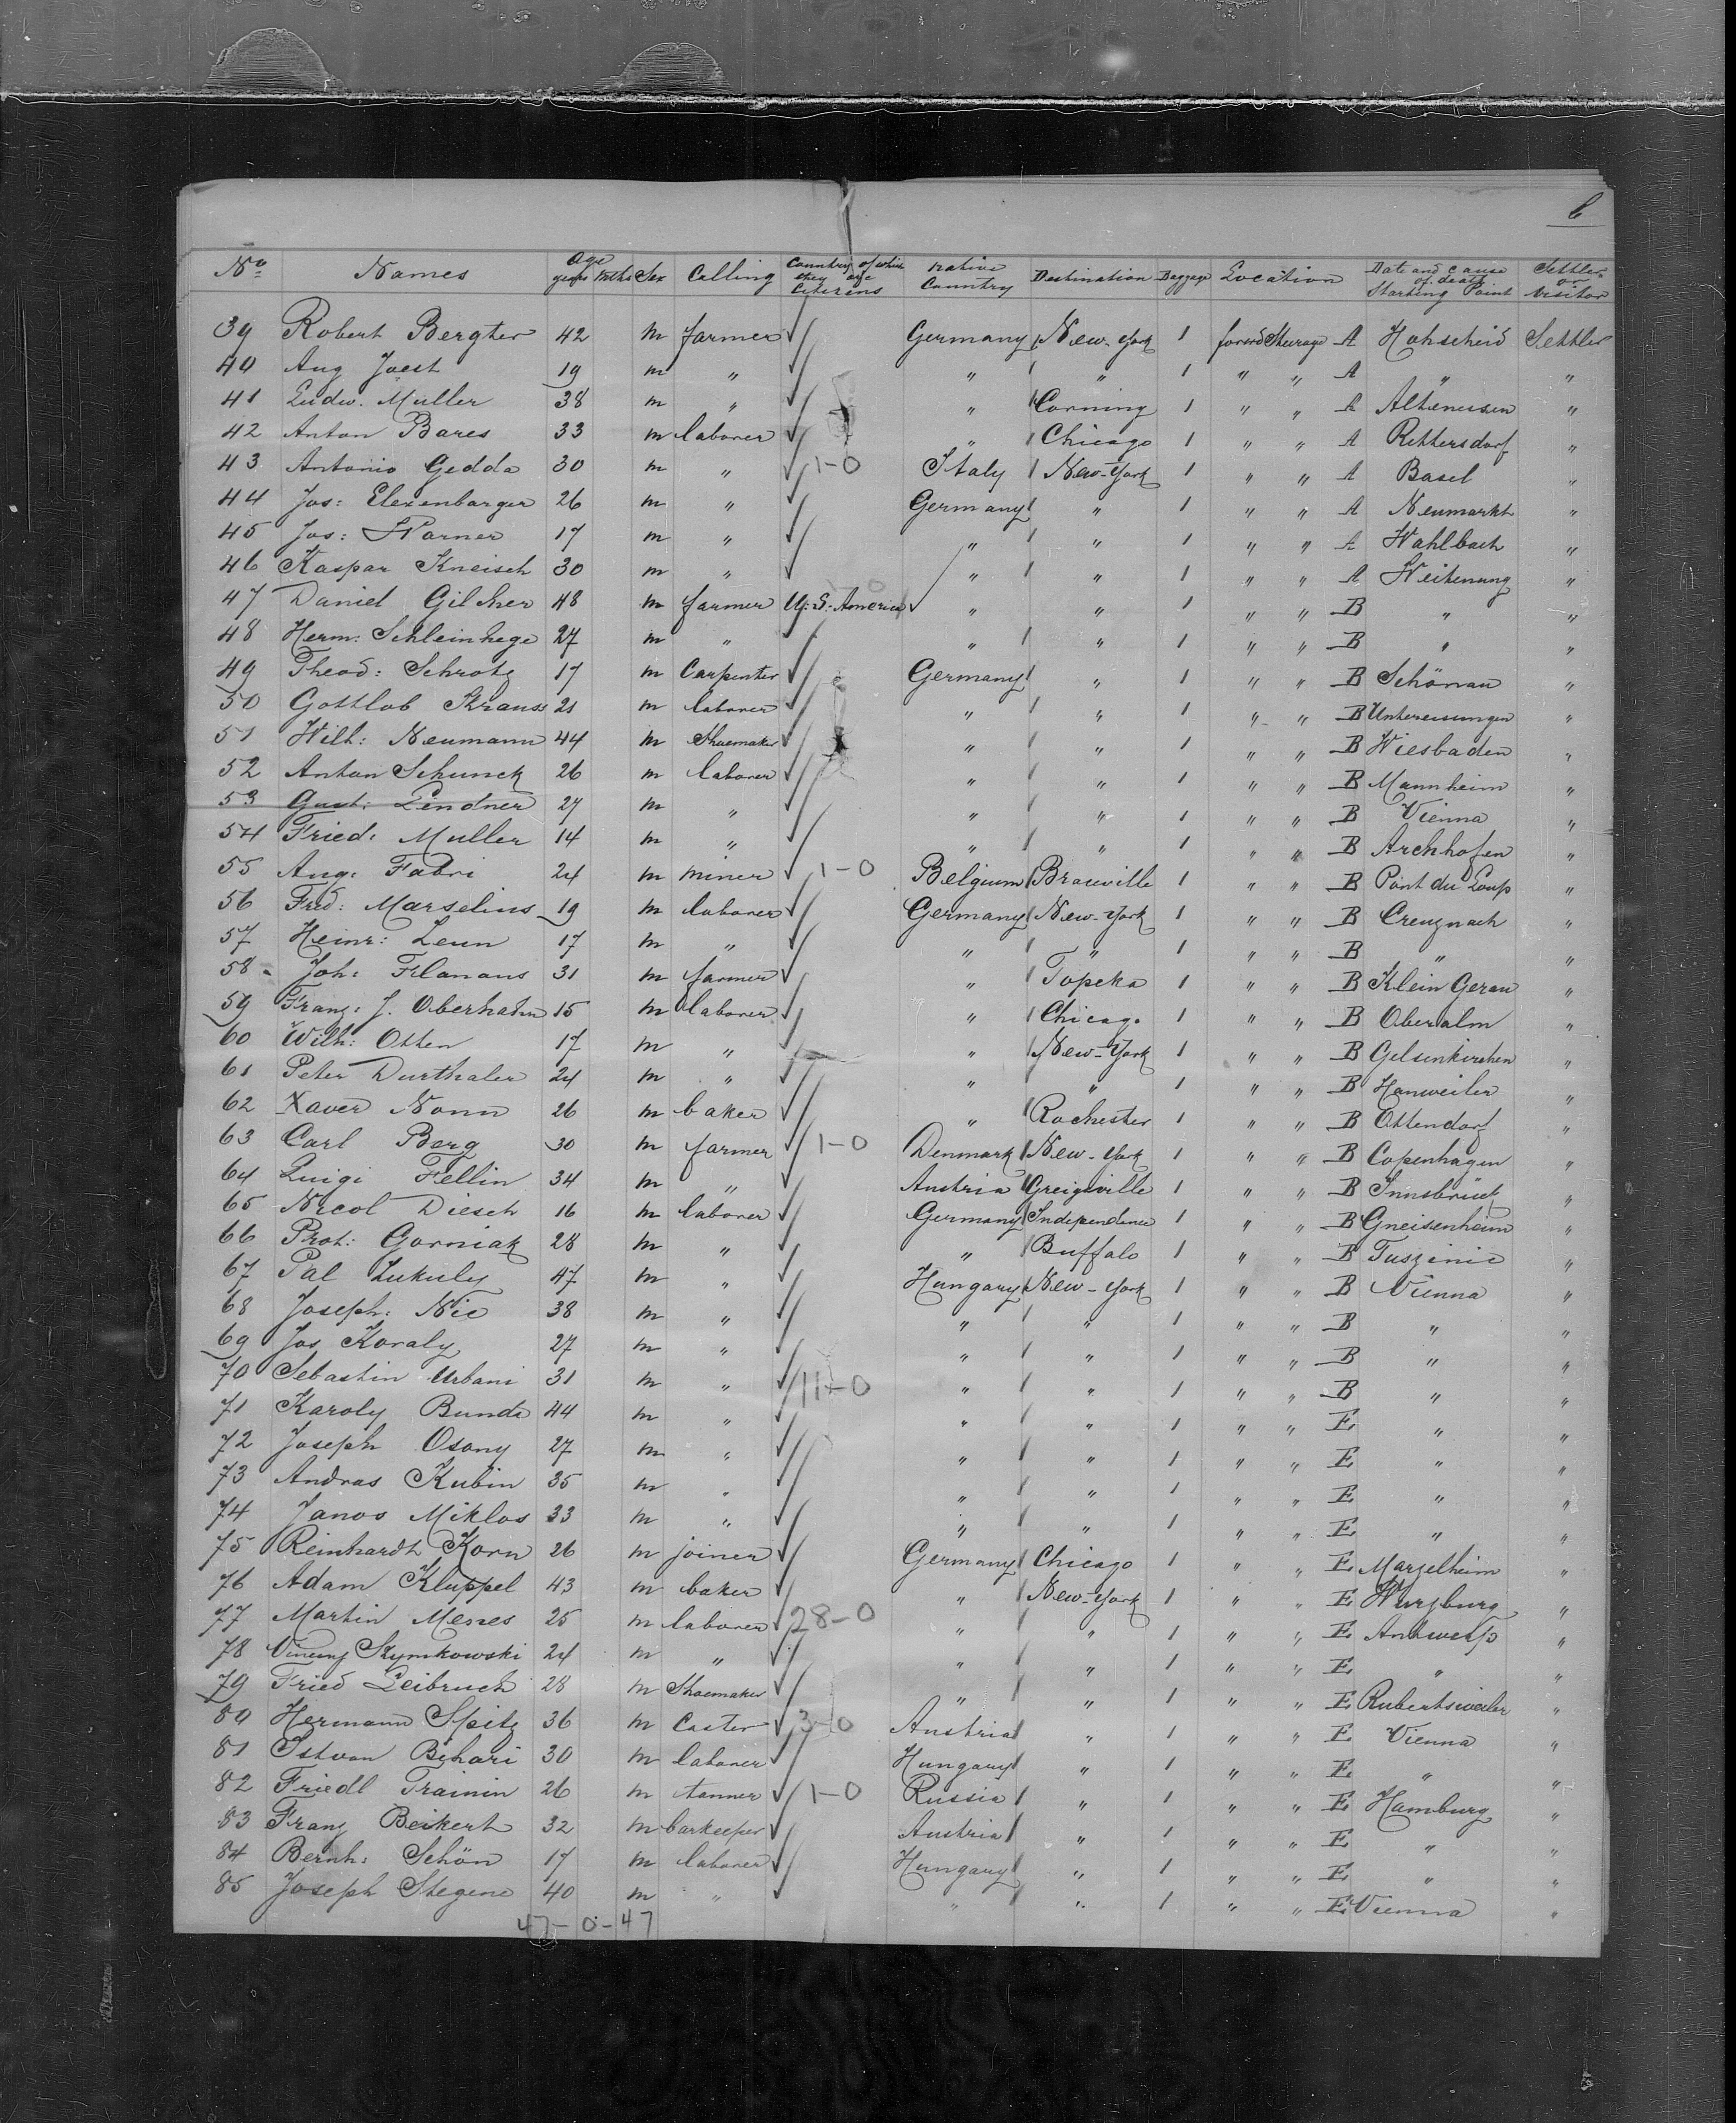 6
No Names Age years Mths Sex Calling Country of which they are Citizens Native Country Destination Baggage Location Date and cause of death Starting Point Settler or Visitor
39 Robert Bergter 42 m farmer ✓ Germany New-York 1 forwd Steerage A Hohscheid Settler
40 Aug Joest 19 m " ✓ " " 1 " " A " "
41 Ludw. Muller 38 m " ✓ " Corning 1 " " A Altenessen "
42 Anton Bares 33 m laborer ✓ " Chicago 1 " " A Rettersdorf "
43 Antonio Gedda 30 m " ✓ 1-0 Italy New-York 1 " " A Basel "
44 Jos: Elexenbarger 26 m " ✓ Germany " 1 " " A Neumarkt "
45 Jos: 17 m " ✓ " " 1 " " A Wahlbach "
46 Kaspar Kneisch 30 m " ✓ " " 1 " " A Weitenung "
47 Daniel Gilcher 48 m farmer U.S. America ✓ " " 1 " " B " "
48 Herm: Schleinhege 27 m " ✓ " " 1 " " B " "
49 Theod: Schrotz 17 m Carpenter ✓ Germany " 1 " " B Schönau "
50 Gottlob Krauss 21 m laborer ✓ " " 1 " " B Untereisungen "
51 Wilh: Neumann 44 m Shoemaker ✓ " " 1 " " B Wiesbaden "
52 Anton Schunck 26 m laborer ✓ " " 1 " " B Mannheim "
53 Gust: Lindner 27 m " ✓ " " 1 " " B Vienna "
54 Fried: Muller 14 m " ✓ " " 1 " " B Archhofen "
55 Aug: Fabri 24 m miner ✓ 1-0 Belgium Brouville 1 " " B Pont du Loup "
56 Fred: Marselius 19 m laborer ✓ Germany New-York 1 " " B Creuznach "
57 Heinr: Leun 17 m " ✓ " " 1 " " B " "
58 Joh: Flanans 31 m farmer ✓ " Topeka 1 " " B Klein Gerau "
59 Franz: J. Oberhahn 15 m laborer ✓ " Chicago 1 " " B Oberalm "
60 Wilh: Otten 17 m " ✓ " New-York 1 " " B Gelsenkirchen "
61 Peter Durthaler 24 m " ✓ " " 1 " " B Hanweiler "
62 Xaver Nonn 26 m baker ✓ " Rochester 1 " " B Ottendorf "
63 Carl Berg 30 m farmer ✓ 1-0 Denmark New-York 1 " " B Copenhagen "
64 Luigi Fellin 34 m " ✓ Austria Greigsville 1 " " B Innsbrück "
65 Nicol Diesch 16 m laborer ✓ Germany Independence 1 " " B Gneisenheim "
66 Prot: Gorniak 28 m " ✓ " Buffalo 1 " " B Tuszinie "
67 Pal Lukuly 47 m " ✓ Hungary New-York 1 " " B Vienna "
68 Joseph: Nic 38 m " ✓ " " 1 " " B " "
69 Jos Koraly 27 m " ✓ " " 1 " " B " "
70 Sebastin Urbani 31 m " ✓ 11-0 " " 1 " " B " "
71 Karoly Bunda 44 m " ✓ " " 1 " " E " "
72 Joseph Osony 27 m " ✓ " " 1 " " E " "
73 Andras Kubin 35 m " ✓ " " 1 " " E " "
74 Janos Miklos 33 m " ✓ " " 1 " " E " "
75 Reinhardt Korn 26 m joiner ✓ Germany Chicago 1 " " E Marzelheim "
76 Adam Kluppel 43 m baker ✓ " New-York 1 " " E Wurzburg "
77 Martin Menes 25 m laborer ✓ 28-0 " " 1 " " E Antwerp "
78 Skymkowski 24 m " ✓ " " 1 " " E " "
79 Fried Leibruch 28 m Shoemaker ✓ " " 1 " " E Rubertsweiler "
80 Hermann Spitz 36 m Caster ✓ 3-0 Austria " 1 " " E Vienna "
81 Istvan Behari 30 m laborer ✓ Hungary " 1 " " E " "
82 Friedl Trainin 26 m tanner ✓ 1-0 Russia " 1 " " E Hamburg "
83 Franz Beikert 32 m barkeeper ✓ Austria " 1 " " E " "
84 Bernh: Schön 17 m laborer ✓ Hungary " 1 " " E " "
85 Joseph Stegene 40 m " ✓ " " 1 " " E Vienna "
47-0-47